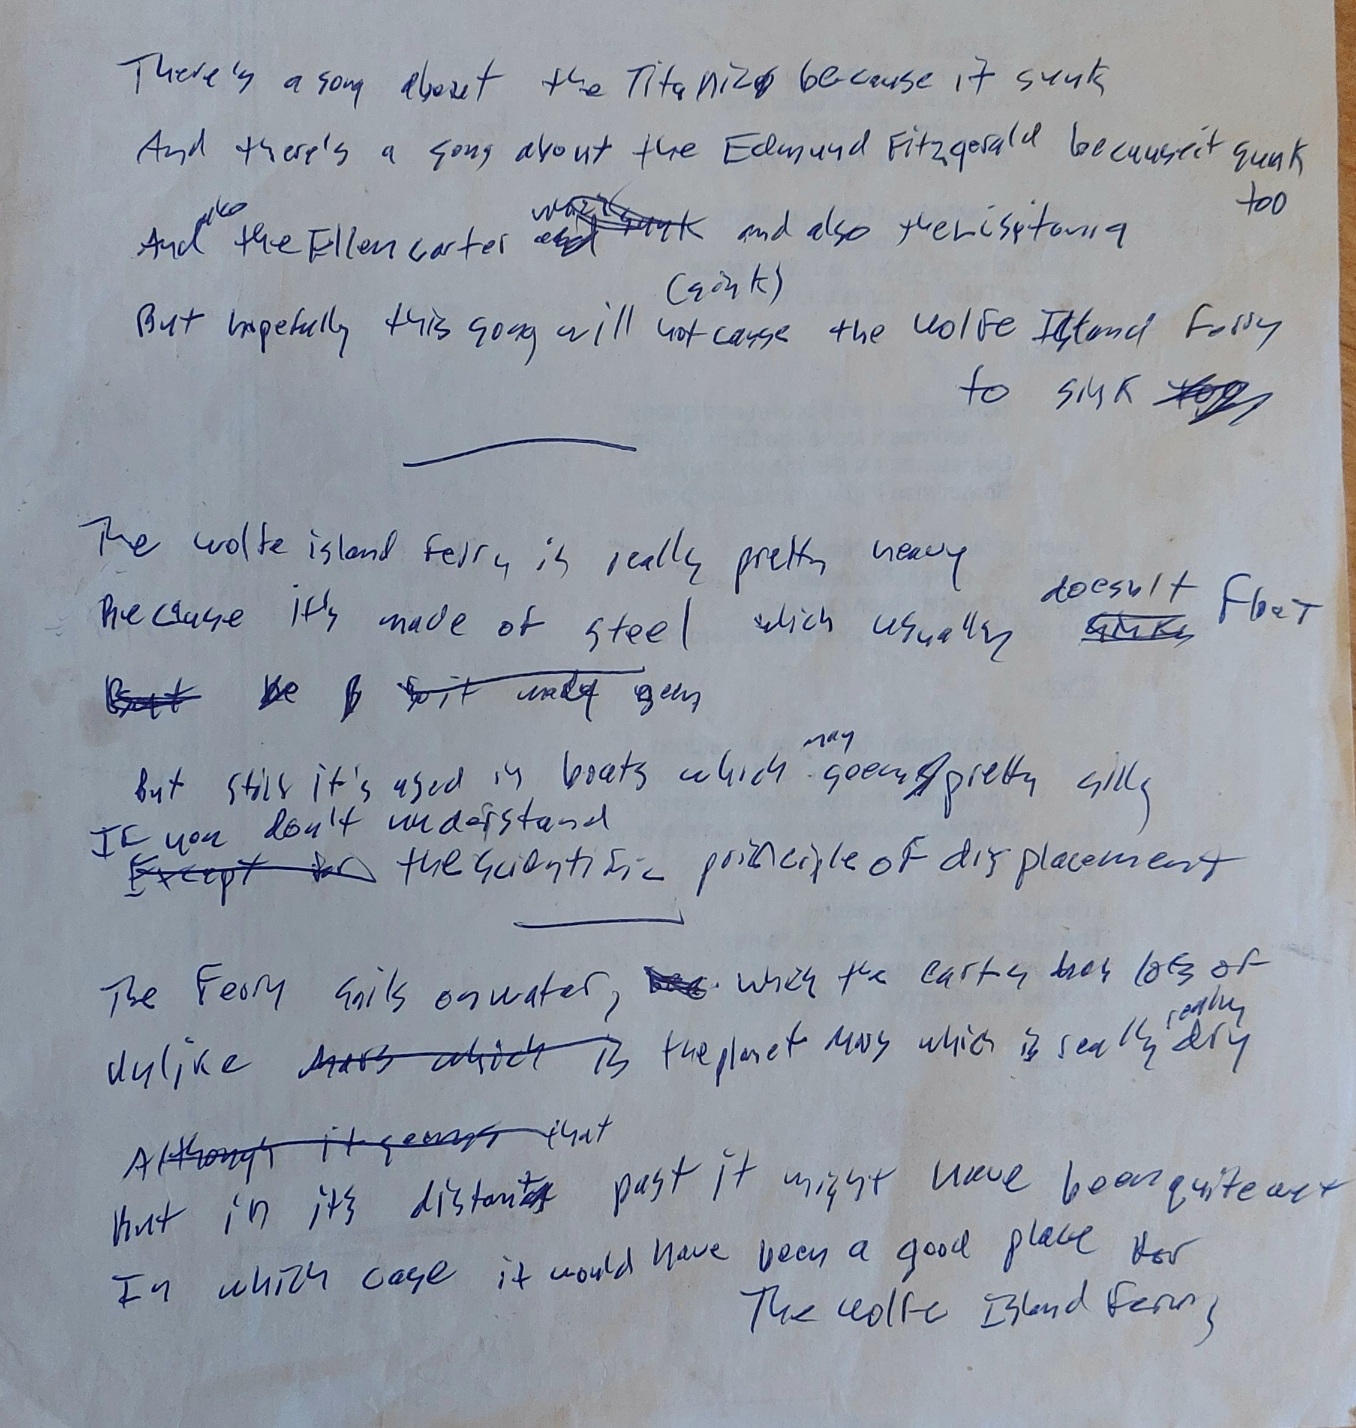 There's a song about the Titanic because it sunk
And there's a song about the Edmund Fitzgerald because it sunk
too
And also the Ellen carter and also the Lisitania
(sink)
But hopefully this song will not cause the Wolfe Island Ferry
to sink too
The wolfe island Ferry is really pretty heavy
Because it's made of steel which usually doesn't float
But so it may seem
But still it's used in boats which may seem pretty silly
If you don't understand
Except for the scientific principle of displacement
The Ferry sails on water, which the earth has lots of
Unlike mars which is the planet Mars which is really really dry
Although it seems that
But in its distant past it might have been quite wet
In which case it would have been a good place for
The Wolfe Island Ferry